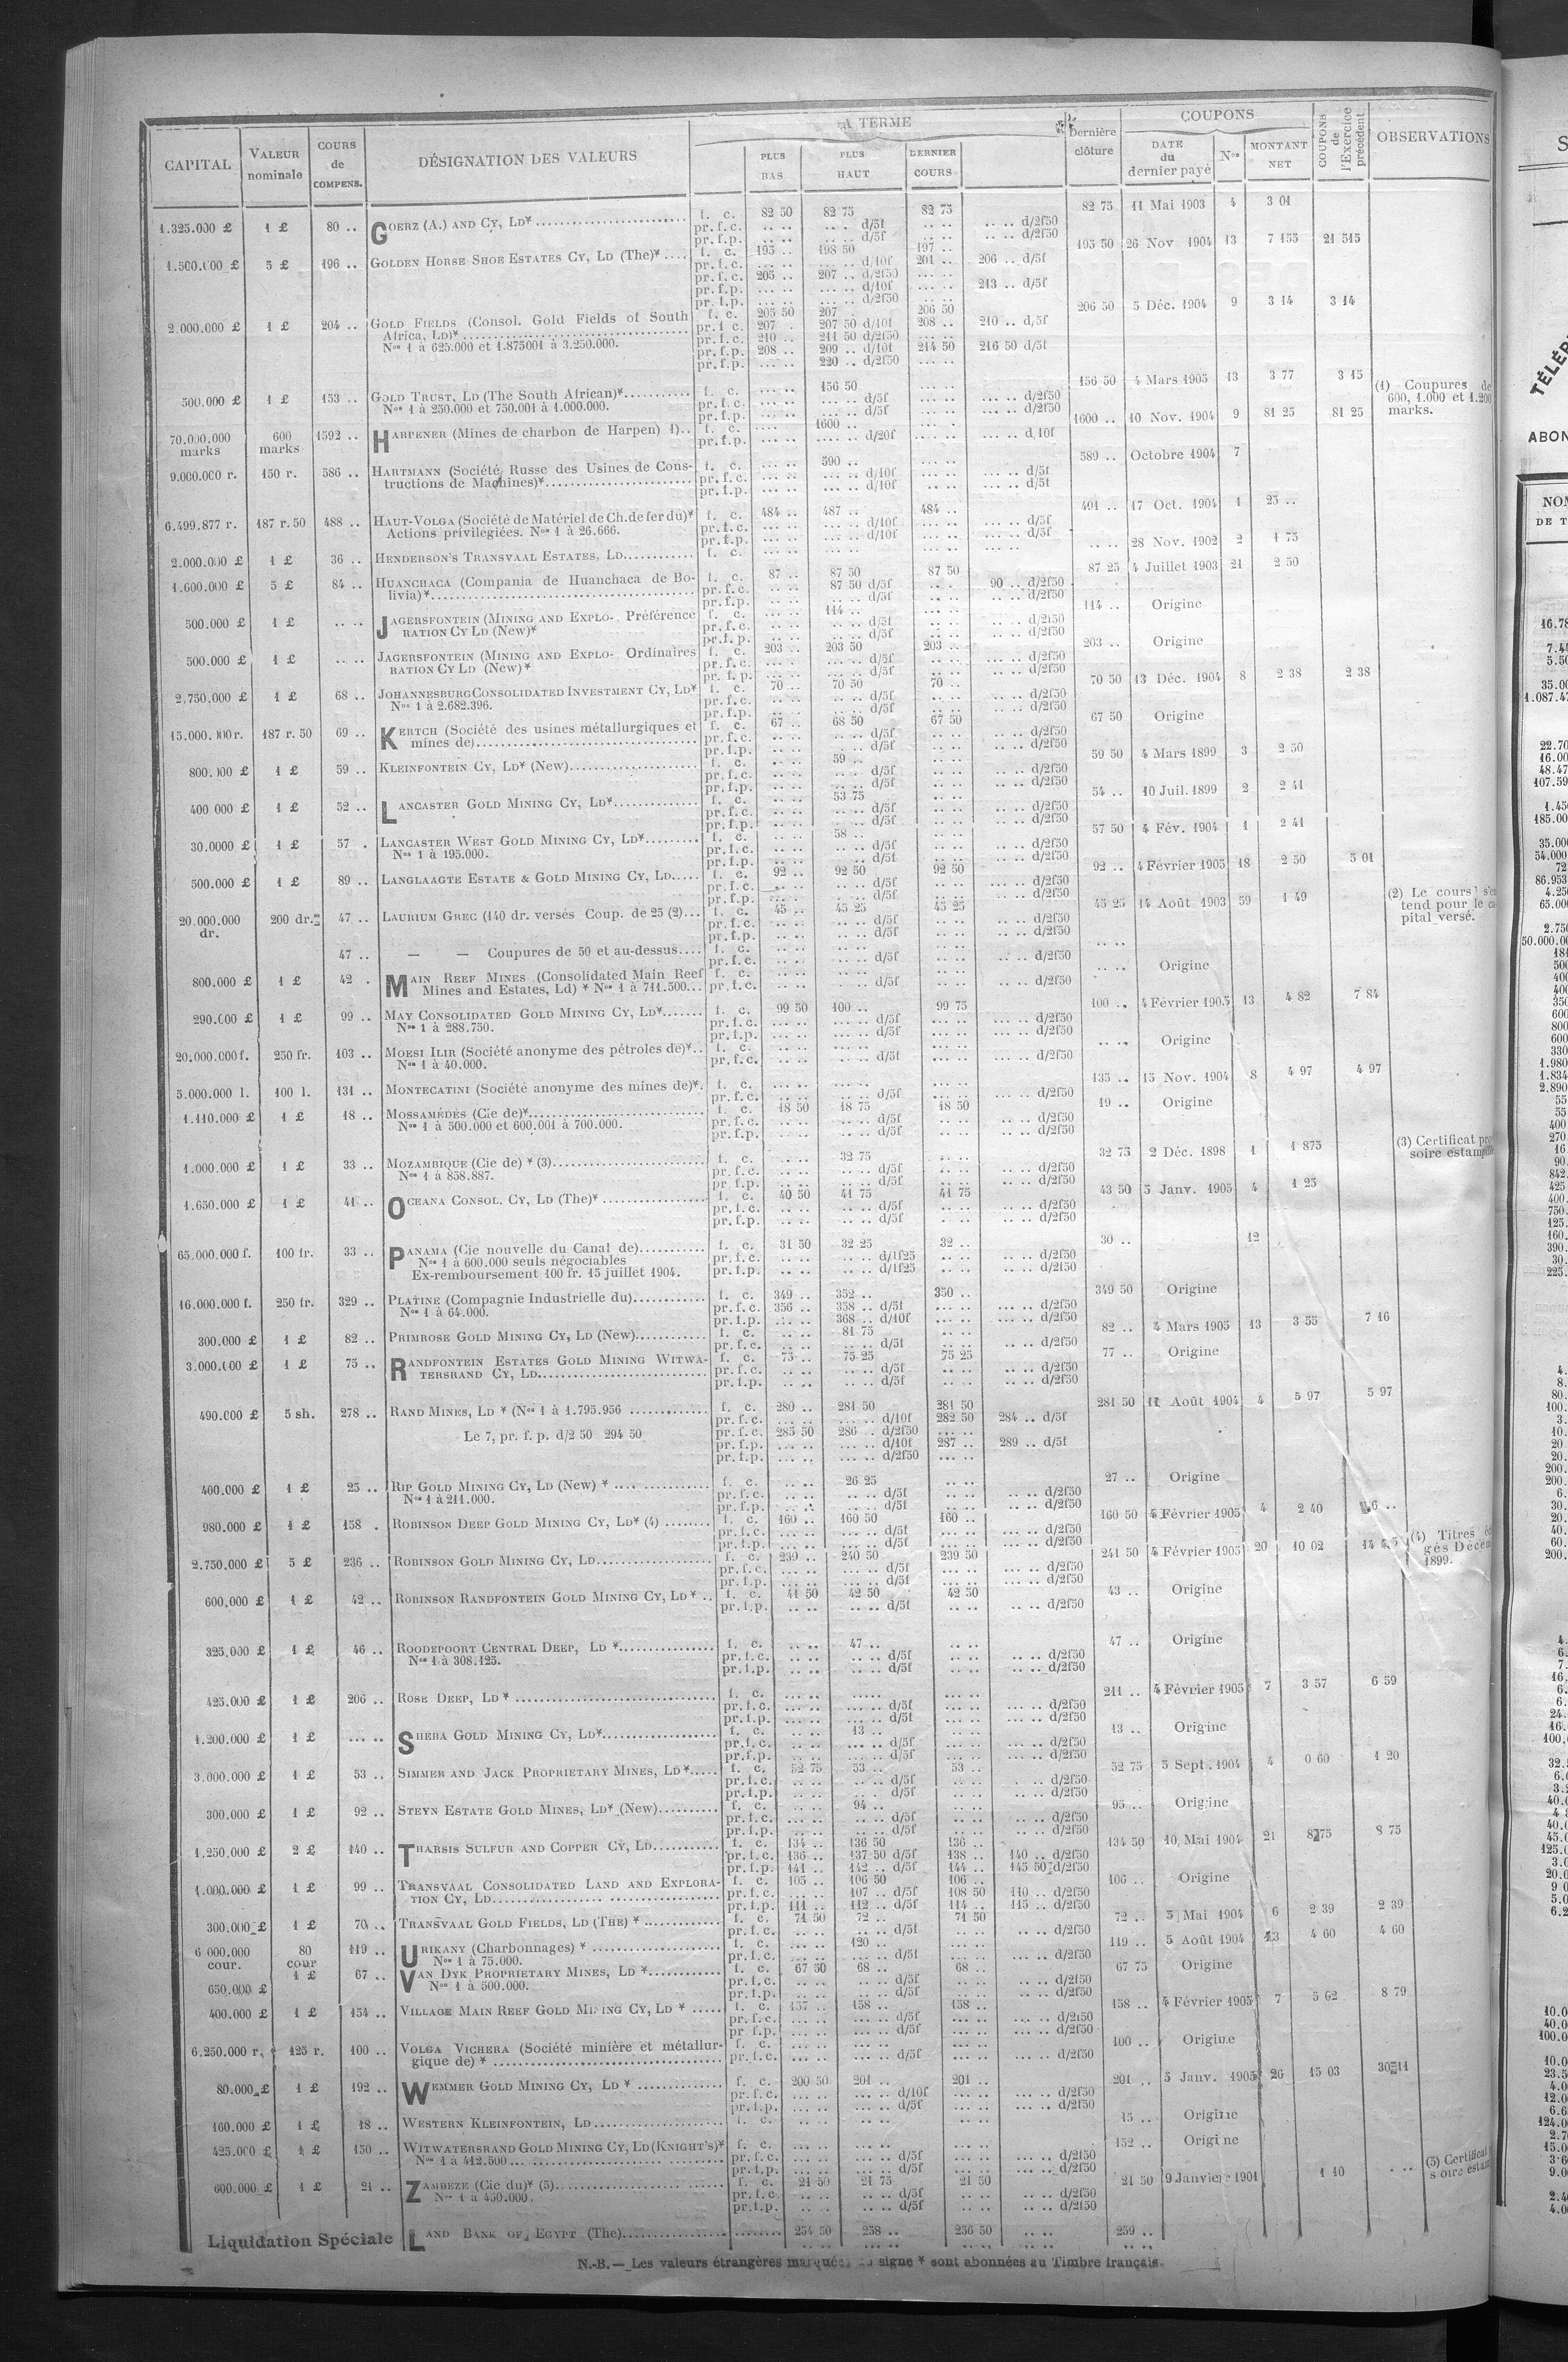 A TERME
COUPONS
CAPITAL VALEUR nominale COURS de COMPENS. DÉSIGNATION DES VALEURS PLUS BAS PLUS HAUT DERNIER COURS Dernière clôture DATE du dernier payé Nos MONTANT NET COUPONS de l'Exercice précédent OBSERVATIONS
1.325.000 £ 1 £ 80 .. GOERZ (A.) AND CY, LD* f. c. 82 50 82 75 82 75 82 75 11 Mai 1903 4 3 01
pr. f. c. .. .. .. . d/5f .. .. .. .. d/2f50
pr. f. p. .. .. .. .. d/5f .. .. .. .. d/2f50
1.500.000 £ 5 £ 196 .. GOLDEN HORSE SHOE ESTATES CY, LD (The)* f. c. 195 .. 198 50 197 .. 195 50 26 Nov. 1904 13 7 155 21 515
pr. f. c. ... .. ... .. d/10f 201 .. 206 .. d/5f
pr. f. c. 205 .. 207 .. d/2f50 ... ..
pr. f. p. ... .. ... .. d/10f ... .. 213 .. d/5f
pr. f. p. ... .. ... .. d/2f50 ... ..
2.000.000 £ 1 £ 204 .. GOLD FIELDS (Consol. Gold Fields of South f. c. 205 50 207 .. 206 50 206 50 5 Déc. 1904 9 3 14 3 14
Africa, LD)* pr. f. c. 207 . 207 50 d/10f 208 .. 210 .. d/5f
Nos 1 à 625.000 et 1.875001 à 3.250.000. pr. f. c. 210 .. 211 50 d/2f50 ... ..
pr. f. p. 208 .. 209 .. d/10f 214 50 216 50 d/5f
pr. f. p. ... .. 220 .. d/2f50 ... ..
500.000 £ 1 £ 153 .. GOLD TRUST, LD (The South African)* f. c. ... .. 156 50 ... .. 156 50 4 Mars 1905 13 3 77 3 15 (1) Coupures de
Nos 1 à 250.000 et 750.001 à 1.000.000. pr. f. c. ... .. ... .. d/5f ... .. ... .. d/2f50 600, 1.000 et 1.200
pr. f. p. ... .. ... .. d/5f ... .. ... .. d/2f50 marks.
70.000.000 marks 600 marks 1592 .. HARPENER (Mines de charbon de Harpen) 1).. f. c. .... 1600 .. .... .. 1600 .. 10 Nov. 1904 9 81 25 81 25
pr. f. p. .... .. .... .. d/20f .... .. .... .. d/10f
9.000.000 r. 150 r. 586 .. HARTMANN (Société Russe des Usines de Cons- f. c. ... .. 590 .. ... .. 589 .. Octobre 1904 7
tructions de Machines)* pr. f. c. ... .. ... .. d/10f ... .. ... .. d/5f
pr. f. p. ... .. ... .. d/10f ... .. ... .. d/5f
6.499.877 r. 187 r. 50 488 .. HAUT-VOLGA (Société de Matériel de Ch. de fer du)* f. c. 484 .. 487 .. 484 .. 491 .. 17 Oct. 1904 1 25 ..
Actions privilégiées. Nos 1 à 26.666. pr. f. c. ... .. ... .. d/10f ... .. ... .. d/5f
pr. f. p. ... .. ... .. d/10f ... .. ... .. d/5f
2.000.000 £ 1 £ 36 .. HENDERSON'S TRANSVAAL ESTATES, LD f. c. .. .. .. .. .. .. .. .. 28 Nov. 1902 2 1 75
1.600.000 £ 5 £ 84 .. HUANCHACA (Compania de Huanchaca de Bo- f. c. 87 .. 87 50 87 50 87 25 4 Juillet 1903 21 2 50
livia)* pr. f. c. .. .. 87 50 d/5f .. . 90 .. d/2f50
pr. f. p. .. .. .. .. d/5f .. .. .. .. d/2f50
500.000 £ 1 £ .. .. JAGERSFONTEIN (MINING AND EXPLO- Préférence f. c. ... .. 114 .. ... .. 114 .. Origine
RATION CY LD (New)* pr. f. c. .. .. .. .. d/5f .. .. ... .. d/2f50
pr. f. p. .. .. .. .. d/5f .. .. ... .. d/2f50
500.000 £ 1 £ .. .. JAGERSFONTEIN (MINING AND EXPLO- Ordinaires f. c. 203 .. 203 50 203 .. 203 .. Origine
RATION CY LD (New)* pr. f. c. .. .. .. .. d/5f .. .. ... .. d/2f50
pr. f. p. .. .. .. .. d/5f .. .. ... .. d/2f50
2.750.000 £ 1 £ 68 .. JOHANNESBURG CONSOLIDATED INVESTMENT CY, LD* f. c. 70 .. 70 50 70 .. 70 50 13 Déc. 1904 8 2 38 2 38
Nos 1 à 2.682.396. pr. f. c. .. .. .. .. d/5f .. .. .. .. d/2f50
pr. f. p. .. .. .. .. d/5f .. .. .. .. d/2f50
15.000.000 r. 187 r. 50 69 .. KERTCH (Société des usines métallurgiques et f. c. 67 .. 68 50 67 50 67 50 Origine
mines de) pr. f. c. .. .. .. .. d/5f .. .. .. .. d/2f50
pr. f. p. .. .. .. .. d/5f .. .. .. .. d/2f50
800.000 £ 1 £ 59 .. KLEINFONTEIN CY, LD* (New) f. c. .. .. 59 .. .. .. 59 50 4 Mars 1899 3 2 50
pr. f. c. .. .. .. .. d/5f .. .. .. .. d/2f50
pr. f. p. .. .. .. .. d/5f .. .. .. .. d/2f50
400 000 £ 1 £ 52 .. LANCASTER GOLD MINING CY, LD* f. c. .. .. 53 75 .. .. 54 .. 10 Juil. 1899 2 2 41
pr. f. c. .. .. .. .. d/5f .. .. .. .. d/2f50
pr. f. p. .. .. .. .. d/5f .. .. .. .. d/2f50
30.0000 £ 1 £ 57 . LANCASTER WEST GOLD MINING CY, LD* f. c. .. .. 58 .. .. .. 57 50 4 Fév. 1904 1 2 41
Nos 1 à 195.000. pr. f. c. .. .. .. .. d/5f .. .. .. .. d/2f50
pr. f. p. .. .. .. .. d/5f .. .. .. .. d/2f50
500.000 £ 1 £ 89 .. LANGLAAGTE ESTATE & GOLD MINING CY, LD f. c. 92 .. 92 50 92 50 92 .. 4 Février 1905 18 2 50 5 01
pr. f. c. .. .. .. .. d/5f .. .. ... .. d/2f50
pr. f. p. .. .. .. .. d/5f .. .. ... .. d/2f50
20.000.000 dr. 200 dr. 47 .. LAURIUM GREC (140 dr. versés Coup. de 25 (2) f. c. 45 .. 45 25 45 25 45 25 14 Août 1903 59 1 49 (2) Le cours s'en
pr. f. c. .. .. .. .. d/5f .. .. .. .. d/2f50 tend pour le ca-
pr. f. p. .. .. .. .. d/5f .. .. .. .. d/2f50 pital versé.
47 .. — — Coupures de 50 et au-dessus f. c. .. .. .. .. .. .. .. ..
pr. f. c. .. .. .. .. d/5f .. .. .. .. d/2f50
800.000 £ 1 £ 42 . MAIN REEF MINES (Consolidated Main Reef f. c. .. .. .. .. .. .. .. .. Origine
Mines and Estates, Ld) * Nos 1 à 711.500 pr. f. c. .. .. .. .. d/5f .. .. .. .. d/2f50
290.000 £ 1 £ 99 .. MAY CONSOLIDATED GOLD MINING CY, LD* f. c. 99 50 100 .. 99 75 100 .. 4 Février 1905 13 4 82 7 84
Nos 1 à 288.750. pr. f. c. ... .. ... .. d/5f ... .. ... .. d/2f50
pr. f. p. ... .. ... .. d/5f ... .. ... .. d/2f50
20.000.000 f. 250 fr. 103 .. MOESI ILIR (Société anonyme des pétroles de)* f. c. .. .. .. .. .. .. .. .. Origine
Nos 1 à 40.000. pr. f. c. .. .. .. .. d/5f .. .. ... .. d/2f50
5.000.000 l. 100 l. 131 .. MONTECATINI (Société anonyme des mines de)* f. c. ... .. ... .. ... .. 135 .. 15 Nov. 1904 8 4 97 4 97
pr. f. c. ... .. ... .. d/5f ... .. .. .. d/2f50
1.110.000 £ 1 £ 18 .. MOSSAMÉDÈS (Cie de)* f. c. 18 50 18 75 18 50 19 .. Origine
Nos 1 à 500.000 et 600.001 à 700.000. pr. f. c. .. .. .. .. d/5f .. .. .. .. d/2f50
pr. f. p. .. .. .. .. d/5f .. .. .. .. d/2f50
1.000.000 £ 1 £ 33 .. MOZAMBIQUE (Cie de) * (3) f. c. .. .. 32 75 .. .. 32 75 2 Déc. 1898 1 1 875 (3) Certificat
Nos 1 à 858.887. pr. f. c. .. .. .. .. d/5f .. .. .. .. d/2f50 soire
pr. f. p. .. .. .. .. d/5f .. .. .. .. d/2f50
1.650.000 £ 1 £ 41 .. OCEANA CONSOL. CY, LD (The)* f. c. 40 50 41 75 41 75 43 50 5 Janv. 1905 4 1 25
pr. f. c. .. .. .. .. d/5f .. .. .. .. d/2f50
pr. f. p. .. .. .. .. d/5f .. .. .. .. d/2f50
65.000.000 f. 100 fr. 33 .. PANAMA (Cie nouvelle du Canal de) f. c. 31 50 32 25 32 .. 30 .. 12
Nos 1 à 600.000 seuls négociables pr. f. c. .. .. .. .. d/1f25 .. .. .. .. d/2f50
Ex-remboursement 100 fr. 15 juillet 1904. pr. f. p. .. .. .. .. d/1f25 .. .. .. .. d/2f50
16.000.000 f. 250 fr. 329 .. PLATINE (Compagnie Industrielle du) f. c. 349 .. 352 .. 350 .. 349 50 Origine
Nos 1 à 64.000. pr. f. c. 356 .. 358 .. d/5f ... .. ... .. d/2f50
pr. f. p. ... .. 368 .. d/10f ... .. ... .. d/2f50
300.000 £ 1 £ 82 .. PRIMROSE GOLD MINING CY, LD (New) f. c. .. .. 81 75 .. .. 82 .. 4 Mars 1905 13 3 55 7 16
pr. f. c. .. .. .. .. d/5f .. .. .. .. d/2f50
3.000.000 £ 1 £ 75 .. RANDFONTEIN ESTATES GOLD MINING WITWA- f. c. 75 .. 75 25 75 25 77 .. Origine
TERSRAND CY, LD pr. f. c. .. .. .. .. d/5f .. .. .. .. d/2f50
pr. f. p. .. .. .. .. d/5f .. .. .. .. d/2f50
490.000 £ 5 sh. 278 .. RAND MINES, LD * (Nos 1 à 1.795.956 f. c. 280 .. 281 50 281 50 281 50 11 Août 1904 4 5 97 5 97
pr. f. c. ... .. ... .. d/10f 282 50 284 .. d/5f
Le 7, pr. f. p. d/2 50 294 50 pr. f. c. 285 50 286 .. d/2f50 ... ..
pr. f. p. ... .. ... .. d/10f 287 .. 289 .. d/5f
pr. f. p. ... .. ... .. d/2f50 ... ..
400.000 £ 1 £ 25 .. RIP GOLD MINING CY, LD (New) * f. c. .. .. 26 25 .. .. 27 .. Origine
Nos 1 à 211.000. pr. f. c. .. .. .. .. d/5f .. .. .. .. d/2f50
pr. f. p. .. .. .. .. d/5f .. .. .. .. d/2f50
980.000 £ 1 £ 158 . ROBINSON DEEP GOLD MINING CY, LD* (4) f. c. 160 .. 160 50 160 .. 160 50 4 Février 1905 4 2 40 6 .. (4) Titres
pr. f. c. ... .. ... .. d/5f ... .. ... .. d/2f50 gés
pr. f. p. ... .. ... .. d/5f ... .. ... .. d/2f50 1899.
2.750.000 £ 5 £ 236 .. ROBINSON GOLD MINING CY, LD f. c. 239 .. 240 50 239 50 241 50 4 Février 1905 20 10 02
pr. f. c. ... .. ... .. d/5f ... .. ... .. d/2f50
pr. f. p. ... .. ... .. d/5f ... .. ... .. d/2f50
600.000 £ 1 £ 42 .. ROBINSON RANDFONTEIN GOLD MINING CY, LD * f. c. 41 50 42 50 42 50 43 .. Origine
pr. f. p. .. .. .. .. d/5f .. .. .. .. d/2f50
325.000 £ 1 £ 46 .. ROODEPOORT CENTRAL DEEP, LD * f. c. .. .. 47 .. .. .. 47 .. Origine
Nos 1 à 308.125. pr. f. c. .. .. .. .. d/5f .. .. .. .. d/2f50
pr. f. p. .. .. .. .. d/5f .. .. .. .. d/2f50
425.000 £ 1 £ 206 .. ROSE DEEP, LD * f. c. ... .. ... .. ... .. 211 .. 4 Février 1905 7 3 57 6 59
pr. f. c. ... .. ... .. d/5f ... .. ... .. d/2f50
pr. f. p. ... .. ... .. d/5f ... .. ... .. d/2f50
1.200.000 £ 1 £ ... .. SHEBA GOLD MINING CY, LD* f. c. .. .. 13 .. .. .. 13 .. Origine
pr. f. c. ... .. ... .. d/5f .. .. ... .. d/2f50
pr. f. p. .. .. .. .. d/5f .. .. .. .. d/2f50
3.000.000 £ 1 £ 53 .. SIMMER AND JACK PROPRIETARY MINES, LD * f. c. 52 75 53 .. 53 .. 52 75 5 Sept. 1904 4 0 60 1 20
pr. f. c. .. .. .. .. d/5f .. .. . .. d/2f50
pr. f. p. .. .. . .. d/5f .. .. .. .. d/2f50
300.000 £ 1 £ 92 .. STEYN ESTATE GOLD MINES, LD* (New) f. c. .. .. 94 .. .. .. 95 .. Origine
pr. f. c. ... .. ... .. d/5f .. .. .. .. d/2f50
pr. f. p. ... .. ... .. d/5f .. .. .. .. d/2f50
1.250.000 £ 2 £ 140 .. THARSIS SULFUR AND COPPER CY, LD f. c. 134 .. 136 50 136 .. 134 50 10 Mai 1904 21 8 75 8 75
pr. f. c. 136 .. 137 50 d/5f 138 .. 140 .. d/2f50
pr. f. p. 141 .. 142 .. d/5f 144 .. 145 50 d/2f50
1.000.000 £ 1 £ 99 .. TRANSVAAL CONSOLIDATED LAND AND EXPLORA- f. c. 105 .. 106 50 106 .. 106 .. Origine
TION CY, LD pr. f. c. ... .. 107 .. d/5f 108 50 110 .. d/2f50
pr. f. p. 111 .. 112 .. d/5f 114 .. 115 .. d/2f50
300.000 £ 1 £ 70 .. TRANSVAAL GOLD FIELDS, LD (THE) * f. c. 71 50 72 .. 71 50 72 .. 5 Mai 1904 6 2 39 2 39
pr. f. c. .. .. .. .. d/5f .. .. .. .. d/2f50
6 000.000 cour. 80 cour 119 .. URIKANY (Charbonnages) * f. c. ... .. 120 .. ... .. 119 .. 5 Août 1904 13 4 60 4 60
Nos 1 à 75.000. pr. f. c. ... .. ... .. d/5f ... .. .. .. d/2f50
650.000 £ 1 £ 67 .. VAN DYK PROPRIETARY MINES, LD * f. c. 67 50 68 .. 68 .. 67 75 Origine
Nos 1 à 500.000. pr. f. c. .. .. .. .. d/5f .. .. .. .. d/2f50
pr. f. p. .. .. .. .. d/5f .. .. .. .. d/2f50
400.000 £ 1 £ 154 .. VILLAGE MAIN REEF GOLD MINING CY, LD * f. c. 157 .. 158 .. 158 .. 158 .. 4 Février 1905 7 5 62 8 79
pr. f. c. ... .. ... .. d/5f ... .. ... .. d/2f50
pr. f. p. ... .. ... .. d/5f ... .. ... .. d/2f50
6.250.000 r. 125 r. 100 .. VOLGA VICHERA (Société minière et métallur- f. c. ... .. ... .. ... .. 100 .. Origine
gique de) * pr. f. c. ... .. ... .. d/5f ... .. ... .. d/2f50
80.000 £ 1 £ 192 .. WEMMER GOLD MINING CY, LD * f. c. 200 50 201 .. 201 .. 201 .. 5 Janv. 1905 26 15 03 30 11
pr. f. c. ... .. ... .. d/10f ... .. ... .. d/2f50
pr. f. p. ... .. ... .. d/5f ... .. ... .. d/2f50
160.000 £ 1 £ 18 .. WESTERN KLEINFONTEIN, LD f. c. .. .. .. .. .. .. 15 .. Origine
425.000 £ 1 £ 150 .. WITWATERSRAND GOLD MINING CY, LD (KNIGHT'S)* f. c. ... .. ... .. ... .. 152 .. Origine
Nos 1 à 412.500 pr. f. c. ... .. ... .. d/5f ... .. ... .. d/2f50
pr. f. p. ... .. ... .. d/5f ... .. ... .. d/2f50
600.000 £ 1 £ 21 .. ZAMBEZE (Cie du)* (5) f. c. 21 50 21 75 21 50 21 50 9 Janvier 1901 1 10 (5) Certificat
Nos 1 à 450.000. pr. f. c. .. .. .. .. d/5f .. .. .. .. d/2f50
pr. f. p. .. .. .. .. d/5f .. .. .. .. d/2f50
Liquidation Spéciale LAND BANK OF EGYPT (The) 254 50 258 .. 256 50 .. .. 259 ..
N.-B. — Les valeurs étrangères marquées du signe * sont abonnées au Timbre français.